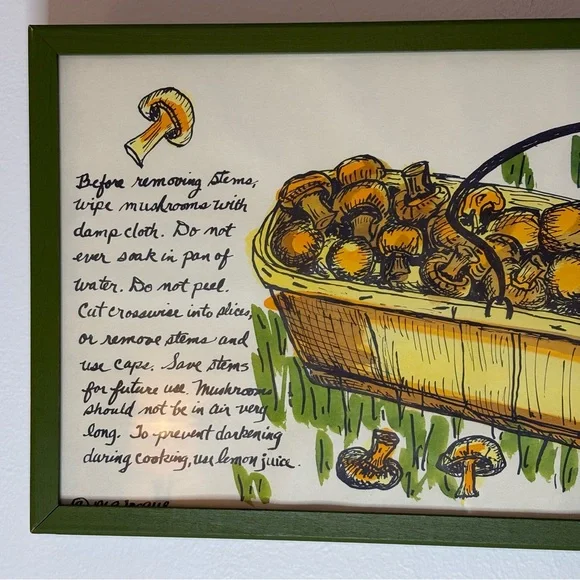 Before removing stems,
wipe mushrooms with
damp cloth. Do not
ever soak in pan of
water. Do not peel.
Cut crosswise into slices,
or remove stems and
use caps. Save stems
for future use. Mushrooms
should not be in air very
long. To prevent darkening
during cooking, use lemon juice.